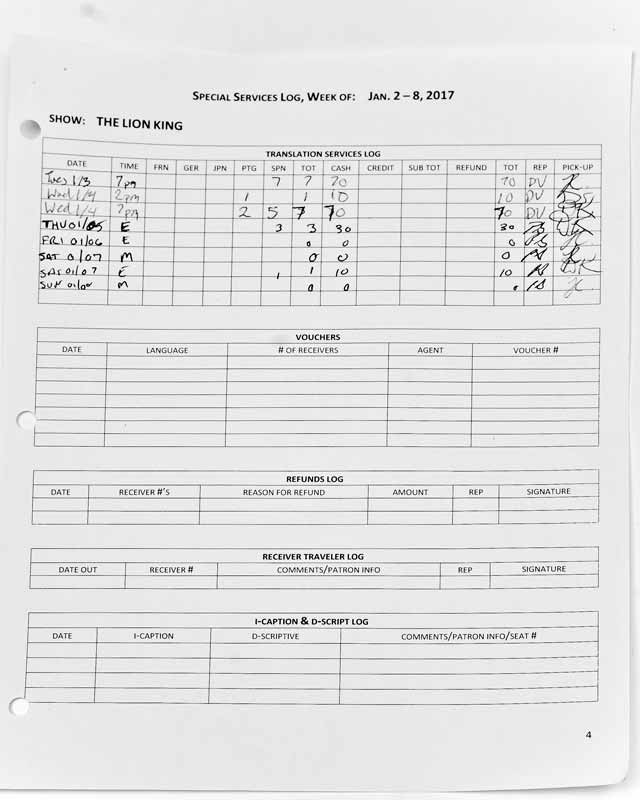 SPECIAL SERVICES LOG, WEEK OF: JAN. 2 – 8, 2017
SHOW: THE LION KING
TRANSLATION SERVICES LOG
DATE TIME FRN GER JPN PTG SPN TOT CASH CREDIT SUB TOT REFUND TOT REP PICK-UP
Tues 1/3 7pm 7 7 70 70 DV
Wed 1/4 2pm 1 1 10 10 DV
Wed 1/4 7pm 2 5 7 70 70 DV
THU 01/05 E 3 3 30 30
FRI 01/06 E 0 0 0
SAT 01/07 M 0 0 0
SAT 01/07 E 1 1 10 10
SUN 01/08 M 0 0 0
VOUCHERS
DATE LANGUAGE # OF RECEIVERS AGENT VOUCHER #
REFUNDS LOG
DATE RECEIVER #'S REASON FOR REFUND AMOUNT REP SIGNATURE
RECEIVER TRAVELER LOG
DATE OUT RECEIVER # COMMENTS/PATRON INFO REP SIGNATURE
I-CAPTION & D-SCRIPT LOG
DATE I-CAPTION D-SCRIPTIVE COMMENTS/PATRON INFO/SEAT #
4